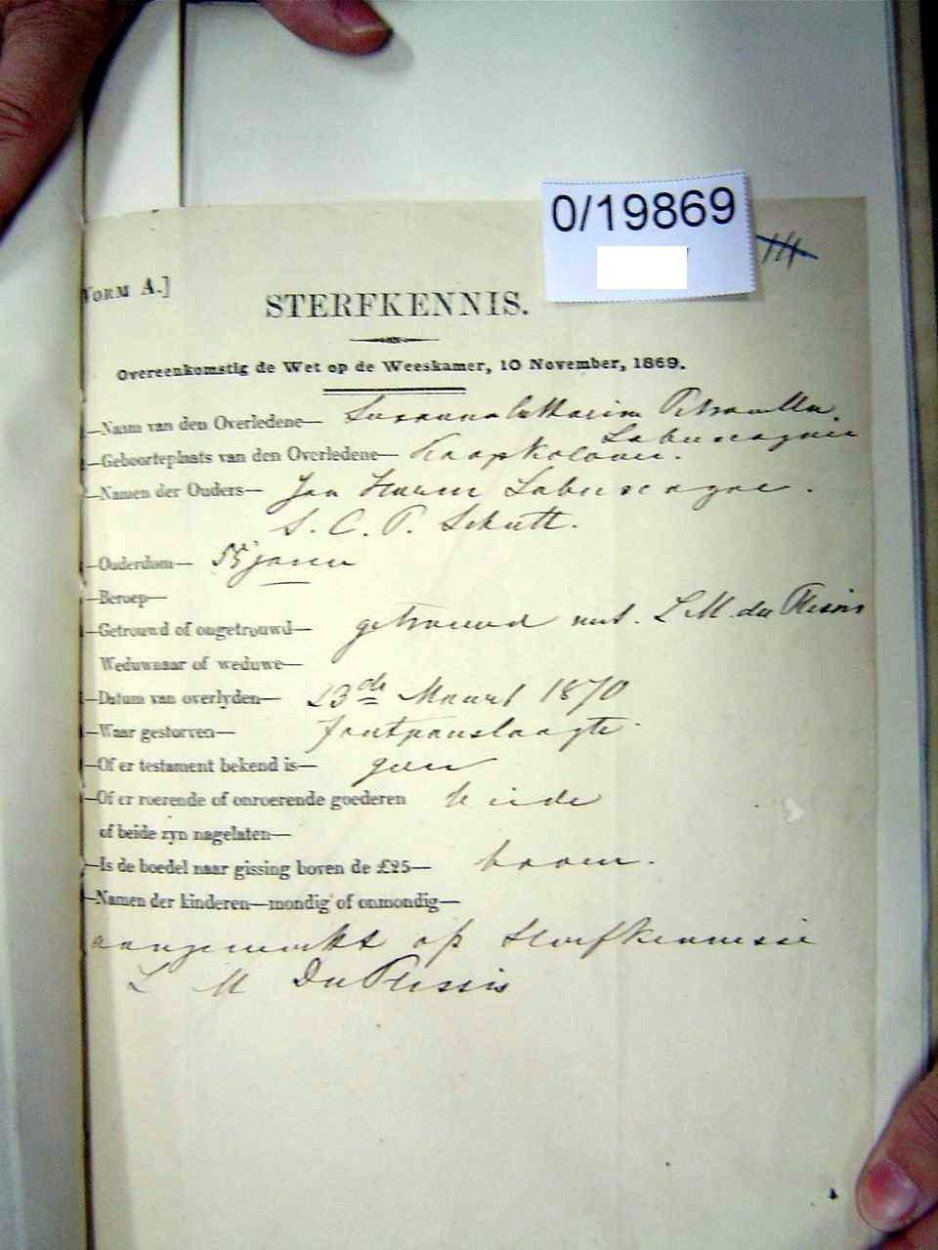 0/19869
VORM A.]
STERFKENNIS.
Overeenkomstig de Wet op de Weeskamer, 10 November, 1869.
—Naam van den Overledene— Susanna Catharina Petronella
Labuscagnie
—Geboorteplaats van den Overledene— Kaapkolonie.
—Namen der Ouders— Jan Harm Labuscagne.
S. C. P. Schutt.
—Ouderdom— 55 jaren
—Beroep—
—Getrouwd of ongetrouwd— getrouwd met L M. du Plessis
Weduwnaar of weduwe—
—Datum van overlyden— 23de Maart 1870
—Waar gestorven— Zoutpanslaagte
—Of er testament bekend is— geen
—Of er roerende of onroerende goederen beide
of beide zyn nagelaten—
—Is de boedel naar gissing boven de £25— boven.
—Namen der kinderen—mondig of onmondig—
aangemerkt op sterfkennisse
L M Du Plessis